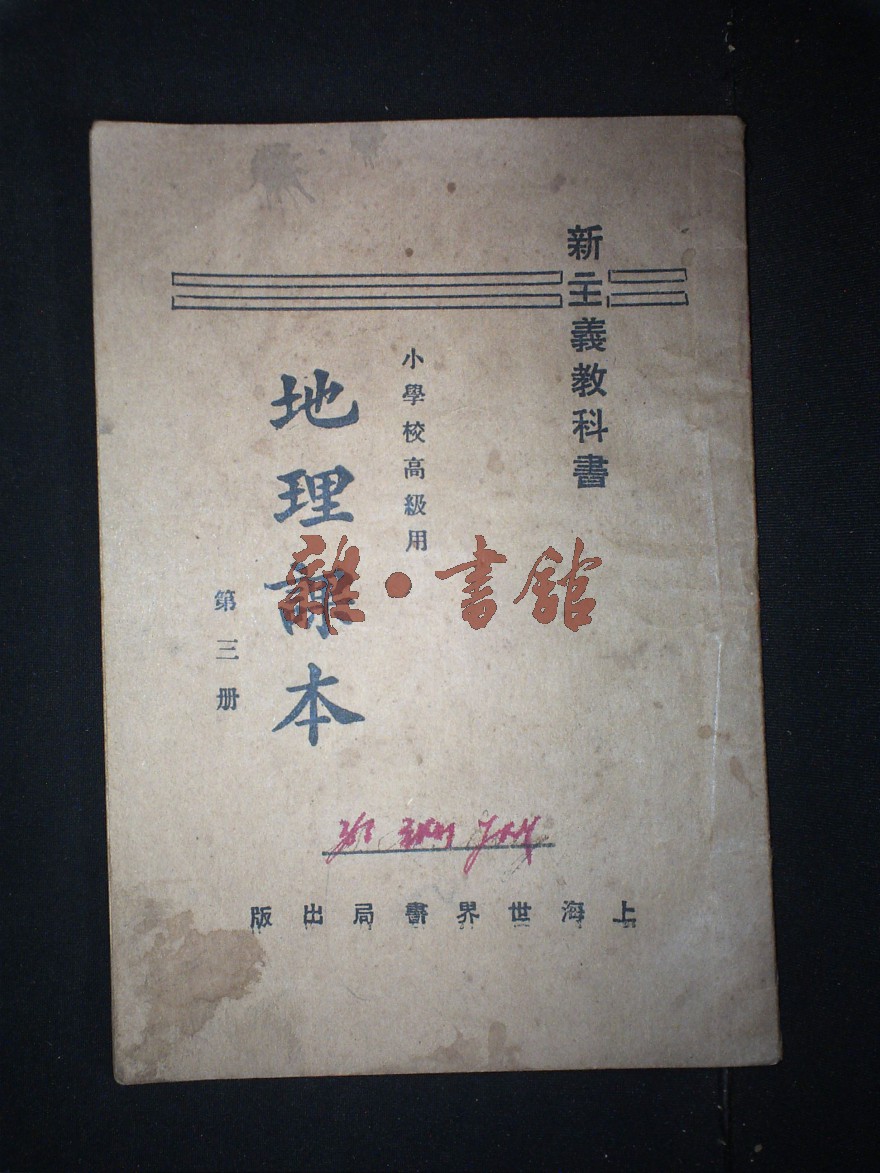 新主義教科書
小學校高級用
地理課本
第三册
上海世界書局出版
雜·書館